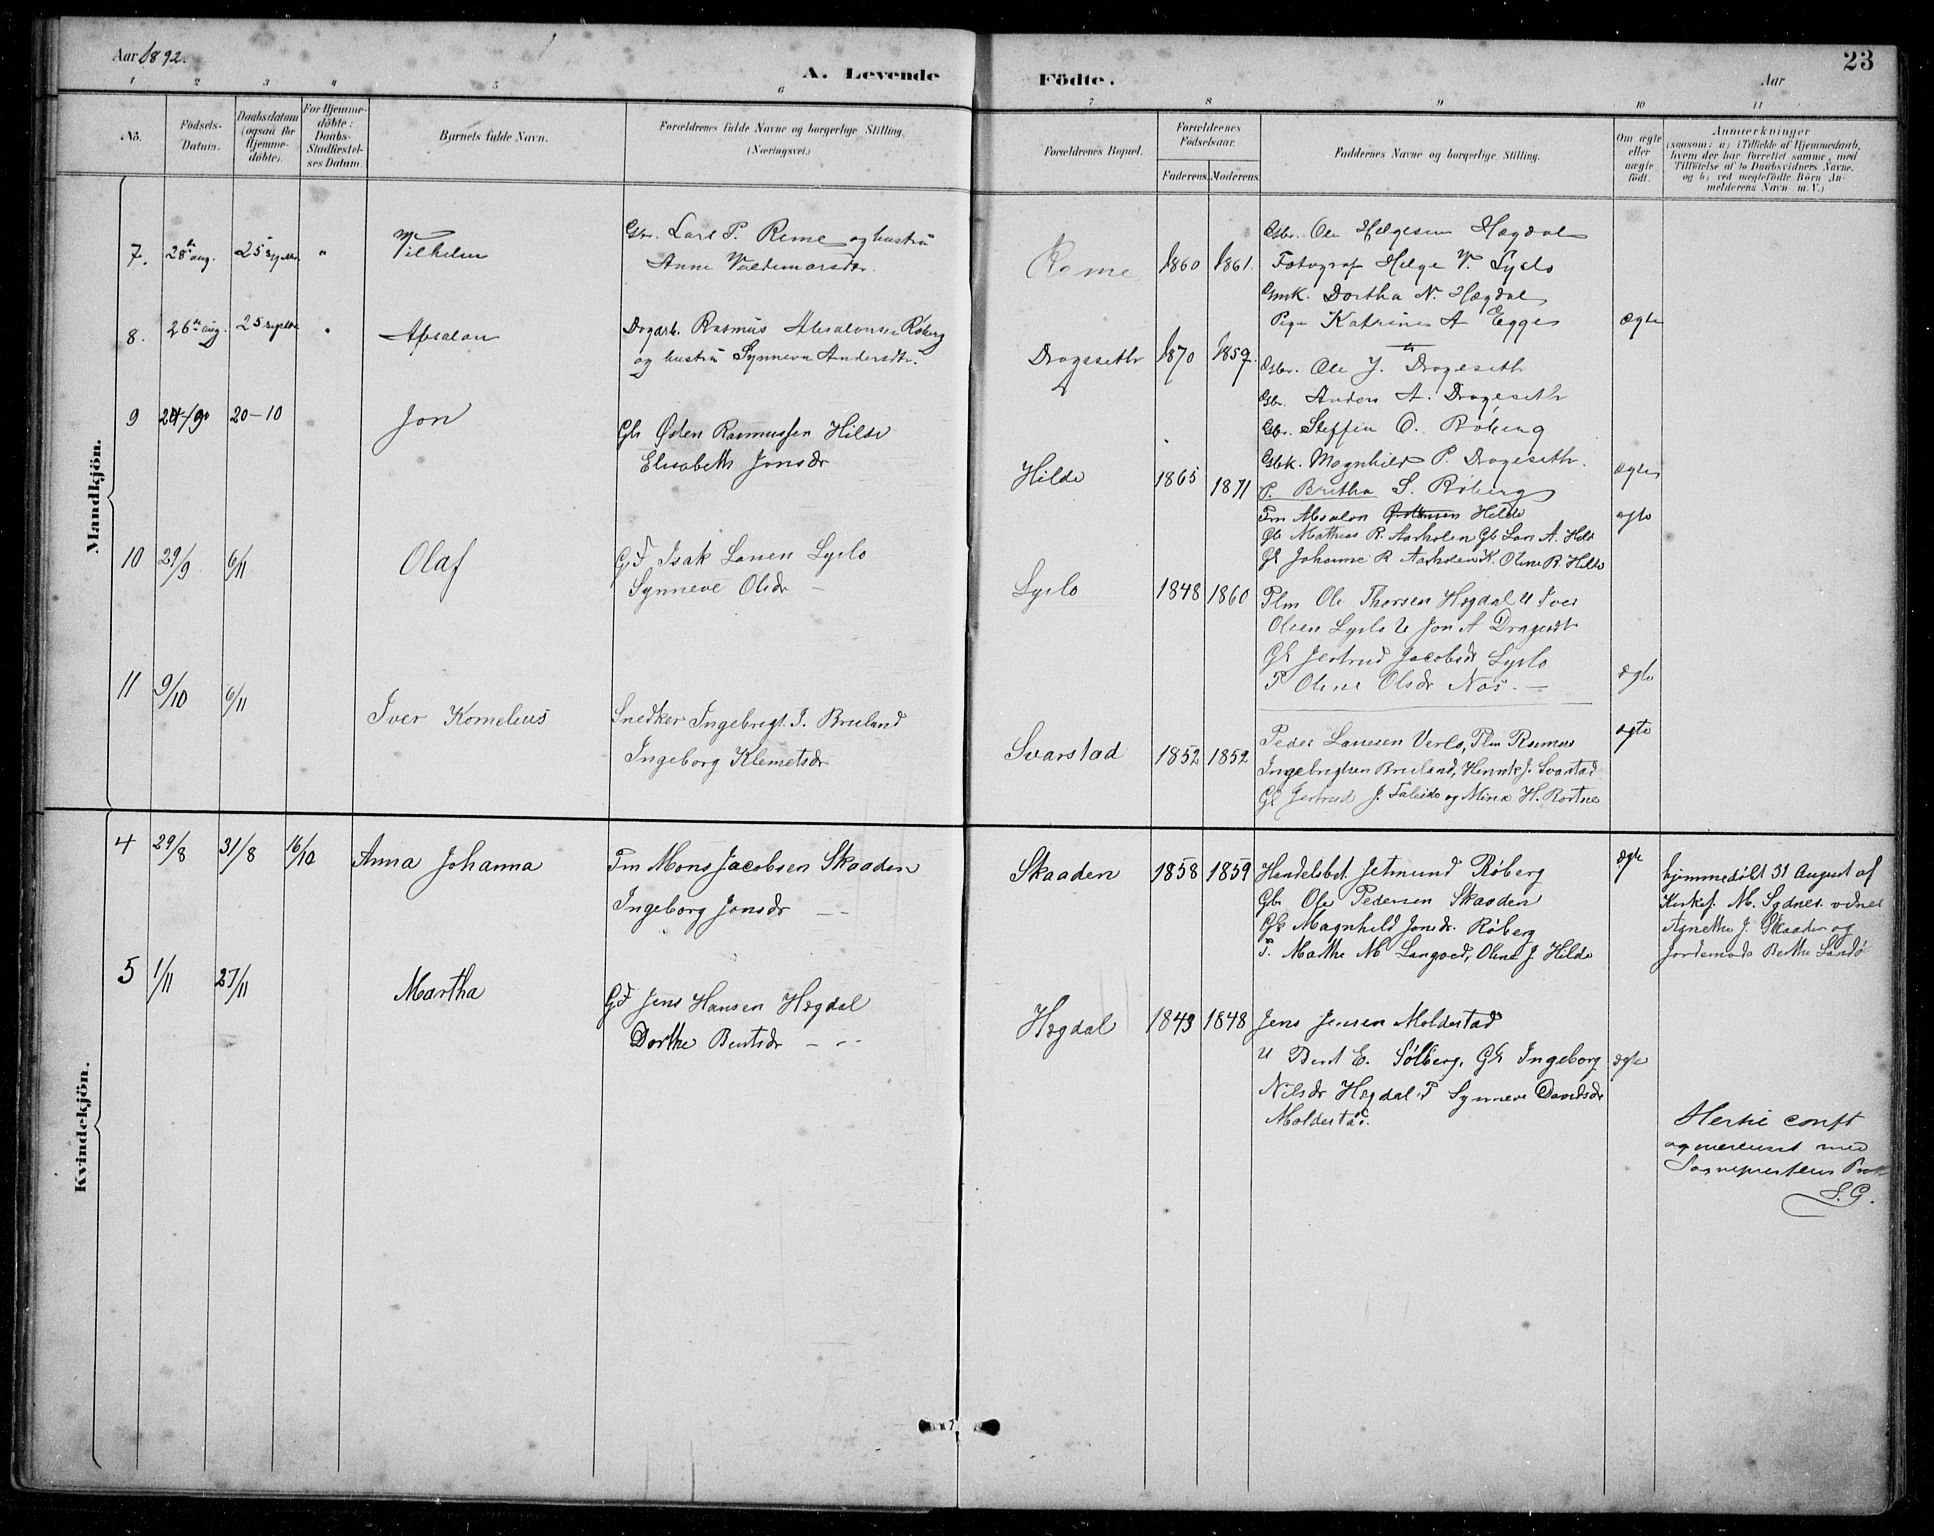 Aar 1892.
A. Levende Födte.
Aar
23
1 2 3 4 5 6 7 8 9 10 11
No.
Födsels-Datum.
Daabsdatum (ogsaa for Hjemmedöbte).
For Hjemmedöbte: Daabs-Stadfæstelses Datum.
Barnets fulde Navn.
Forældrenes fulde Navne og borgerlige Stilling. (Næringsvei.)
Forældrenes Bopæl.
Forældrenes Födselsaar.
Faderens. Moderens.
Faddernes Navne og borgerlige Stilling.
Om ægte eller uægte födt.
Anmærkninger
(saasom: a) i Tilfælde af Hjemmedaab, hvem der har forrettet samme, med Tilföielse af to Daabsvidners Navne, og b) ved uægtefödte Börn Anmelderens Navn m. V.)
Mandkjön.
7. 28 aug. 25 septbr. " Vilhelm
Gbr. Lars P. Reme og hustru
Anne Valdemarsdr.
Reme 1860 1861.
Gbr. Ole Helgesen Hægdal
Fotograf Helge V. Lyslo
Gmk. Dortha N. Hægdal
Pige Katrine A Egge
ægte
8. 26 aug. 25 septbr " Absalon
Dagarb. Rasmus Absalonsen Røberg
og hustru Synneva Andersdtr.
Drageseth 1870 1859.
Gbr. Ole J. Drageseth
Gbr. Anders A. Drageseth
Gbr. Steffen O. Røberg
Gbk. Magnhild P. Drageseth.
P. Britha S. Røberg
ægte
9 20-10 Jon
Gb Østen Rasmussen Hilde
Elisabeth Jonsdr
Hilde 1865 1871
Fm Absalon Hilde
Gb Mathias R. Aarholen Gb Lars A. Hilde
Gk Johanne R Aarholen K. Oline R. Hilde
ægte
10 29/9 6/11 Olaf
GF Isak Larsen Lyslo
Synneve Olsdr —
Lyslo 1848 1860
Plm Ole Thorsen Hægdal U Iver
Olsen Lyslo U Jon A Drageset
Gk Jertrud Jacobsdr Lyslo
P Oline Olsdr Nos. —
ægte
11 9/10 6/11 Iver Kornelius
Snedker Ingebregt I. Bruland
Ingeborg Klemetsdr
Svarstad 1852 1852
Peder Larssen Verlo, Plm Rasmus
Ingebrigtsen Bruland, Henrik J. Svarstad
Gk Jertrud J. Taleide og Mina H. Rortne
ægte
Kvindekjön.
4 29/8 31/8 16/10 Anna Johanna
Fm Mons Jacobsen Skaaden
Ingeborg Jonsdr — —
Skaaden 1858 1859
Handelsbet. Jetmund Røberg
Gb Ole Pedersen Skaaden
Gk Magnhild Jonsdr. Røberg
P. Marthe M Langved, Oline J. Hilde
ægte
hjemmedöbt 31 August af
Kirkes. M. Sydnes. vidner
Agnethe J. Skaaden og
Jordemoder Berthe Sandø
5 1/11 27/11 Martha
GF Jens Hansen Hægdal
Dorthe Bentsdr — - -
Hægdal 1843 1848
Jens Jensen Moldestad
U Bent E. Sølberg, Gk Ingeborg
Nilsdr Hægdal, P Synneve Davidsdr
Moldestad.
ægte
Hertil conft
og overensst med
Sognepræstens Prot
S.G.